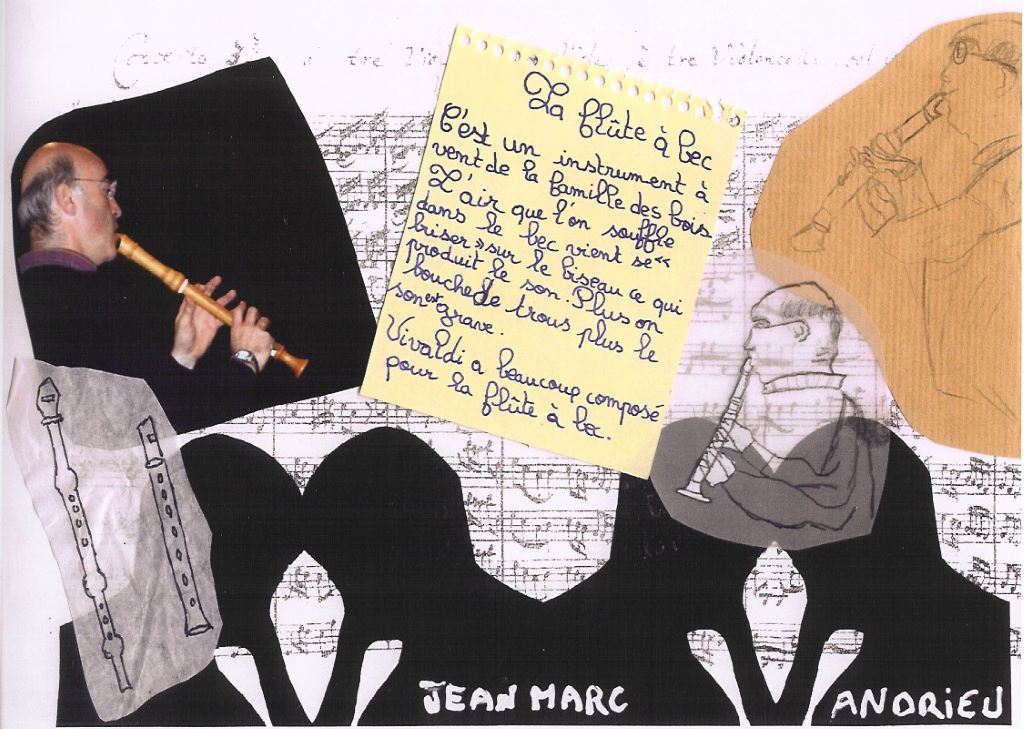 Concerto à tre Violoncelli
La flûte à bec
C'est un instrument à
vent de la famille des bois
L'air que l'on souffle
dans le bec vient se «
briser » sur le biseau ce qui
produit le son. Plus on
bouche de trous plus le
son est grave.
Vivaldi a beaucoup composé
pour la flûte à bec.
JEAN MARC
ANDRIEU